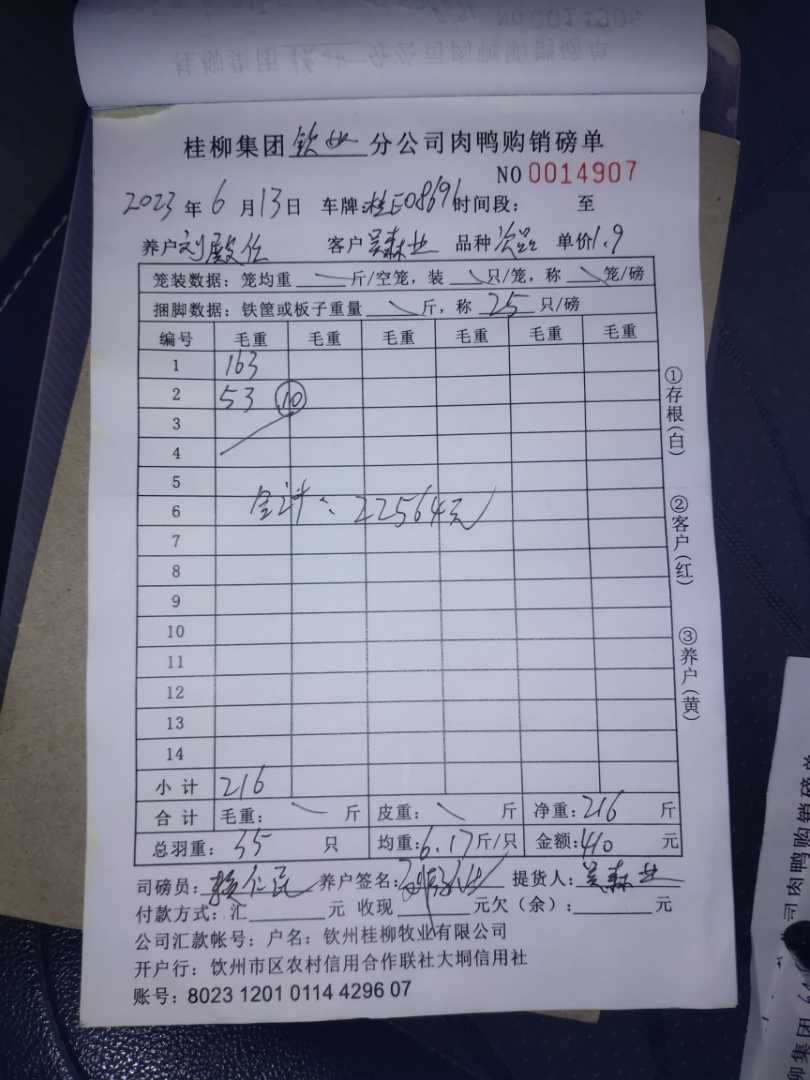 桂柳集团钦州分公司肉鸭购销磅单
NO 0014907
2023 年 6 月 13 日 车牌:桂E08691 时间段: 至
养户 刘殿仕 客户 吴森业 品种 次品 单价 1.9
笼装数据: 笼均重 斤/空笼, 装 只/笼, 称 笼/磅
捆脚数据: 铁筐或板子重量 斤, 称 25 只/磅
编号 毛重 毛重 毛重 毛重 毛重 毛重
1 163
2 53 10
3
4
5
6
合计: 22564元
7
8
9
10
11
12
13
14
小计 216
合计 毛重: 斤 皮重: 斤 净重: 216 斤
总羽重: 35 只 均重: 6.17 斤/只 金额: 410 元
司磅员: 赖仁民 养户签名: 提货人: 吴森业
付款方式: 汇 元 收现 元欠(余): 元
公司汇款帐号: 户名: 钦州桂柳牧业有限公司
开户行: 饮州市区农村信用合作联社大垌信用社
账号: 8023 1201 0114 4296 07
①存根(白)
②客户(红)
③养户(黄)